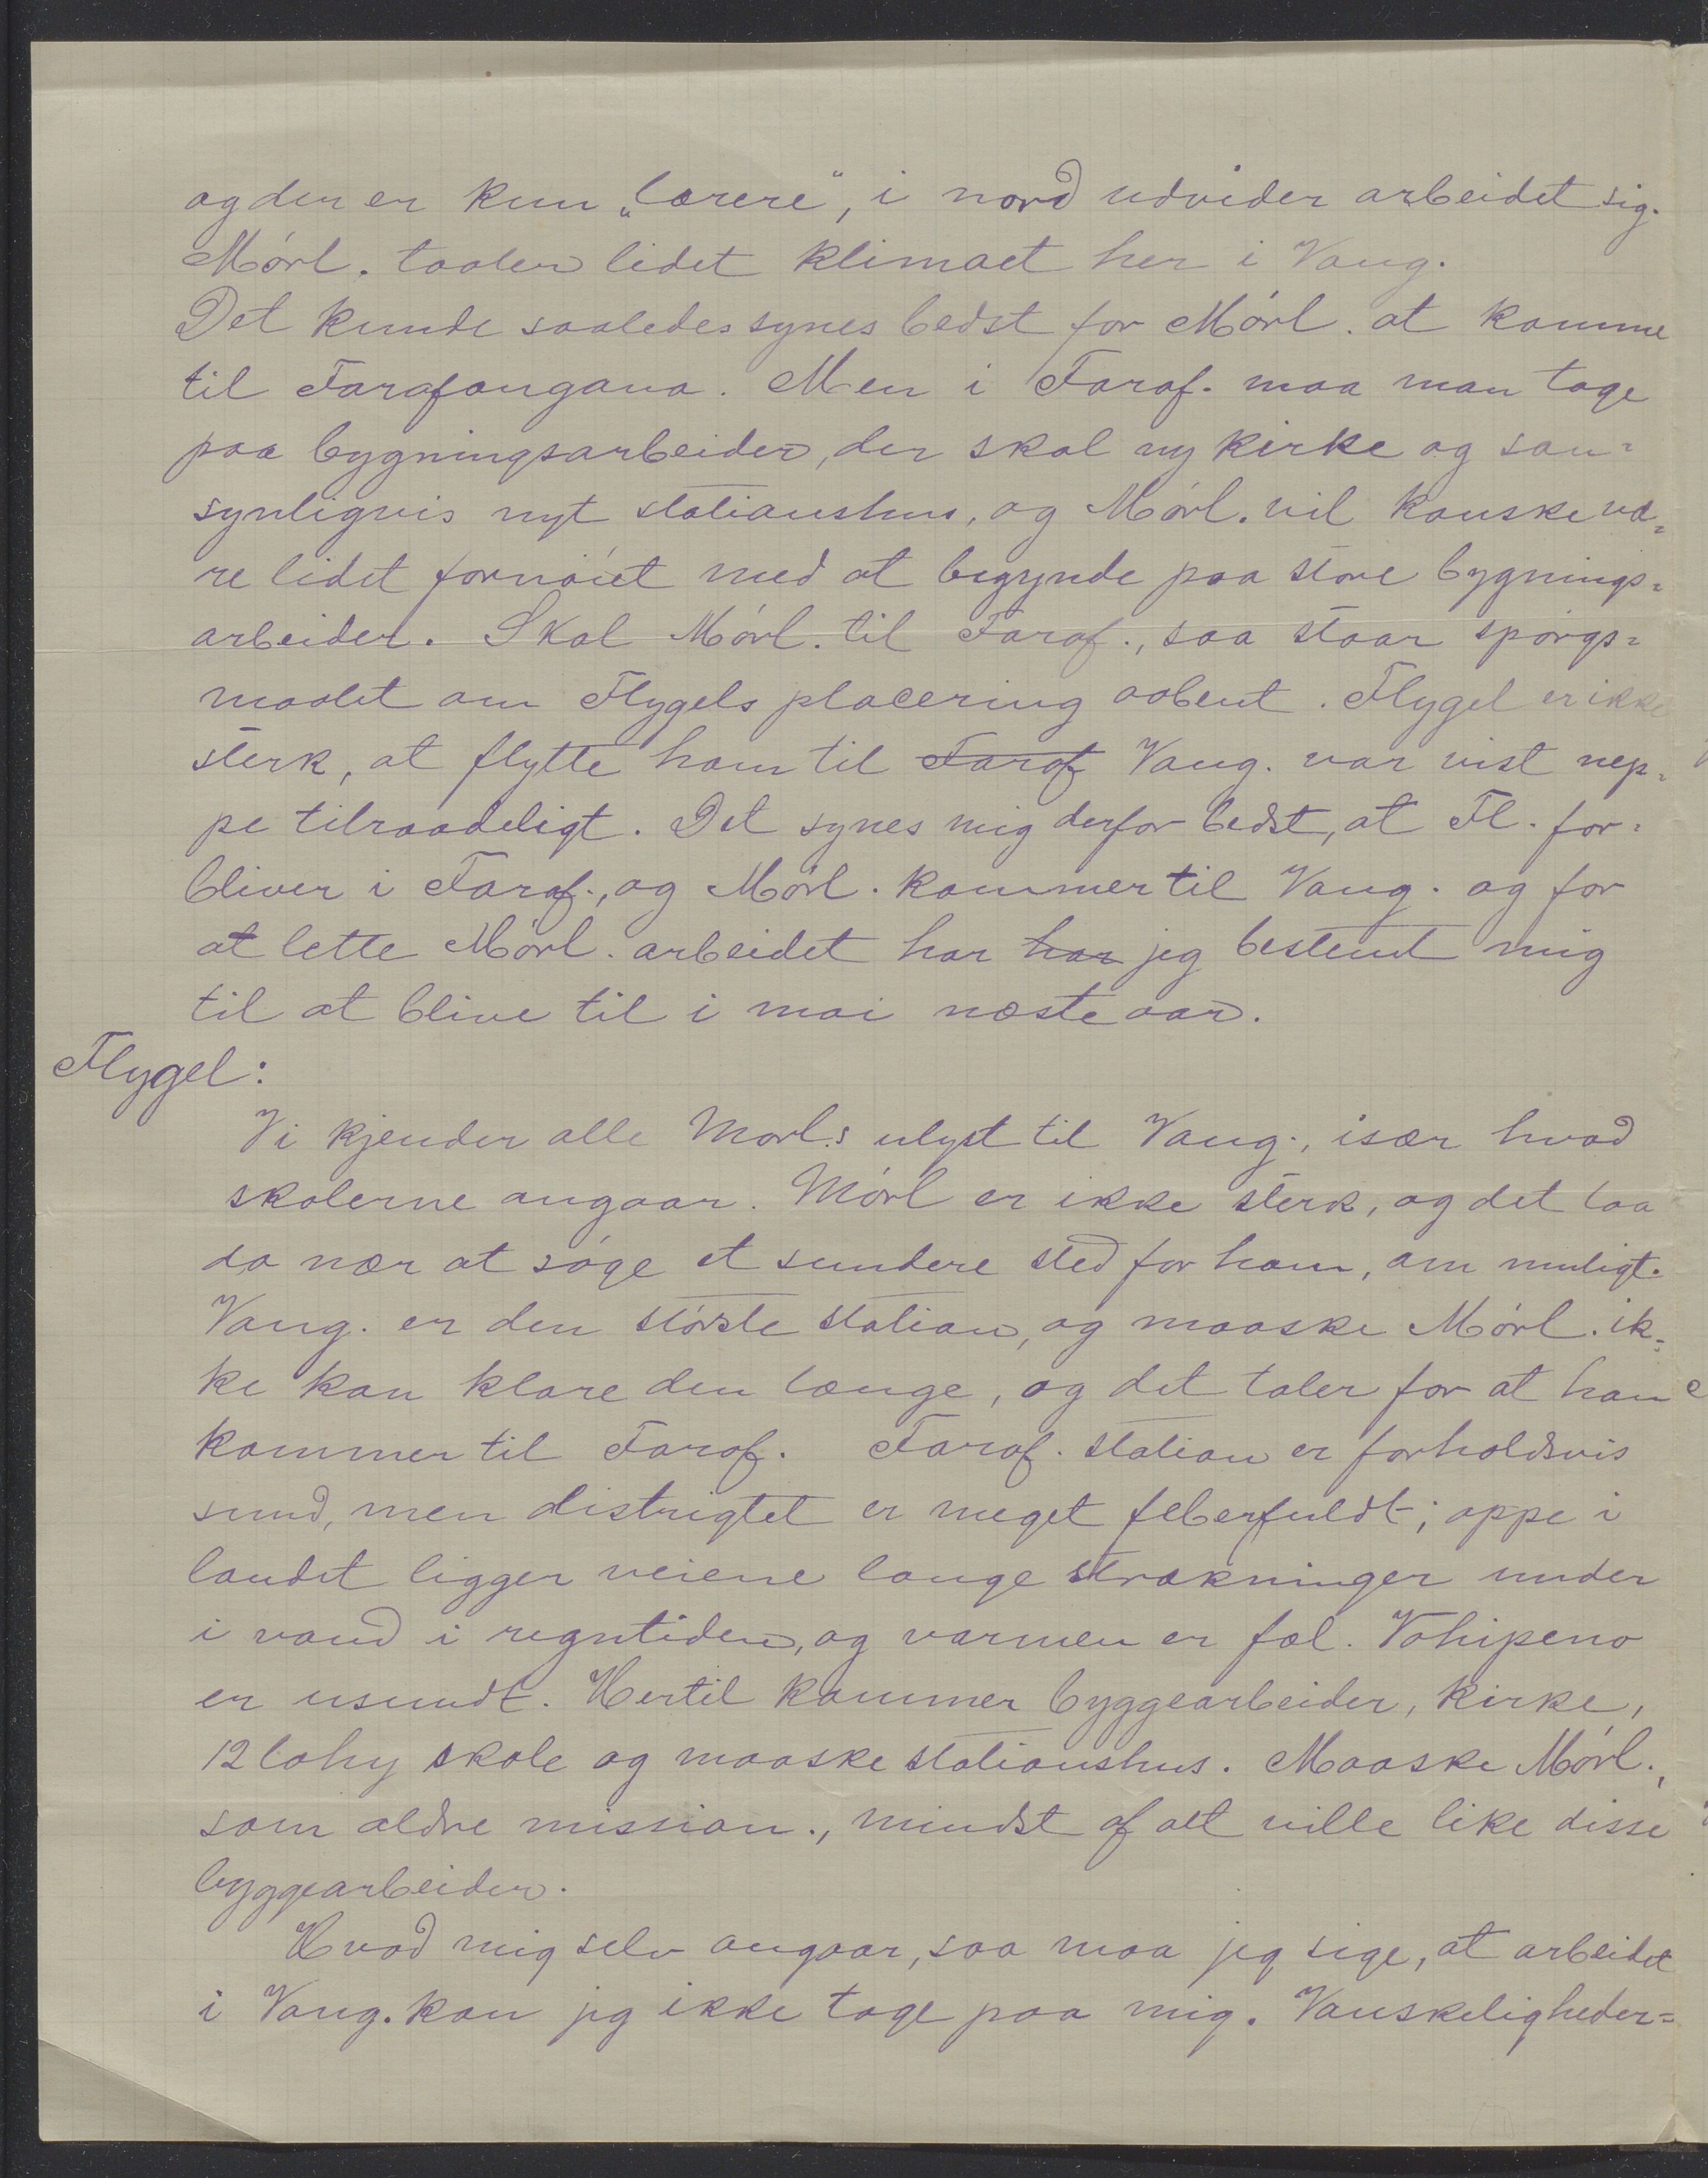 og der er kun „lærere", i nord udvider arbeidet sig.
Mørl. taaler lidet klimaet her i Vang.
Det kunde saaledes synes bedst for Mørl. at komme
til Farafangana. Men i Faraf. maa man tage
paa bygningsarbeider, der skal ny kirke og san=
synligvis nyt stationshus, og Mørl. vil kanske væ=
re lidet fornøiet med at begynde paa store bygnings=
arbeider. Skal Mørl. til Faraf., saa staar spørgs=
maalet om Flygels placering aabent. Flygel er ikke
sterk, at flytte ham til Faraf Vang. var vist nep=
pe tilraadeligt. Det synes mig derfor bedst, at Fl. for=
bliver i Faraf., og Mørl. kommer til Vang. og for
at lette Mørl. arbeidet har har jeg bestemt mig
til at blive til i mai næste aar.
Flygel:
Vi kjender alle Mørl.s ulyst til Vang., især hvad
skolerne angaar. Mørl er ikke sterk, og det laa
da nær at søge et sundere sted for ham, om muligt.
Vang. er den største station, og maaske Mørl. ik=
ke kan klare den længe, og det taler for at han
kommer til Faraf. Faraf. station er forholdsvis
sund, men distrigtet er meget feberfuldt; oppe i
landet ligger veiene lange strækninger under
i vand i regntiden, og varmen er fæl. Vohipeno
er usundt. Hertil kommer byggearbeider, kirke,
12 lahy skole og maaske stationshus. Maaske Mørl.,
som ældre mission., mindst af alt ville like disse
byggearbeider.
Hvad mig selv angaar, saa maa jeg sige, at arbeidet
i Vang. kan jeg ikke tage paa mig. Vanskeligheder=